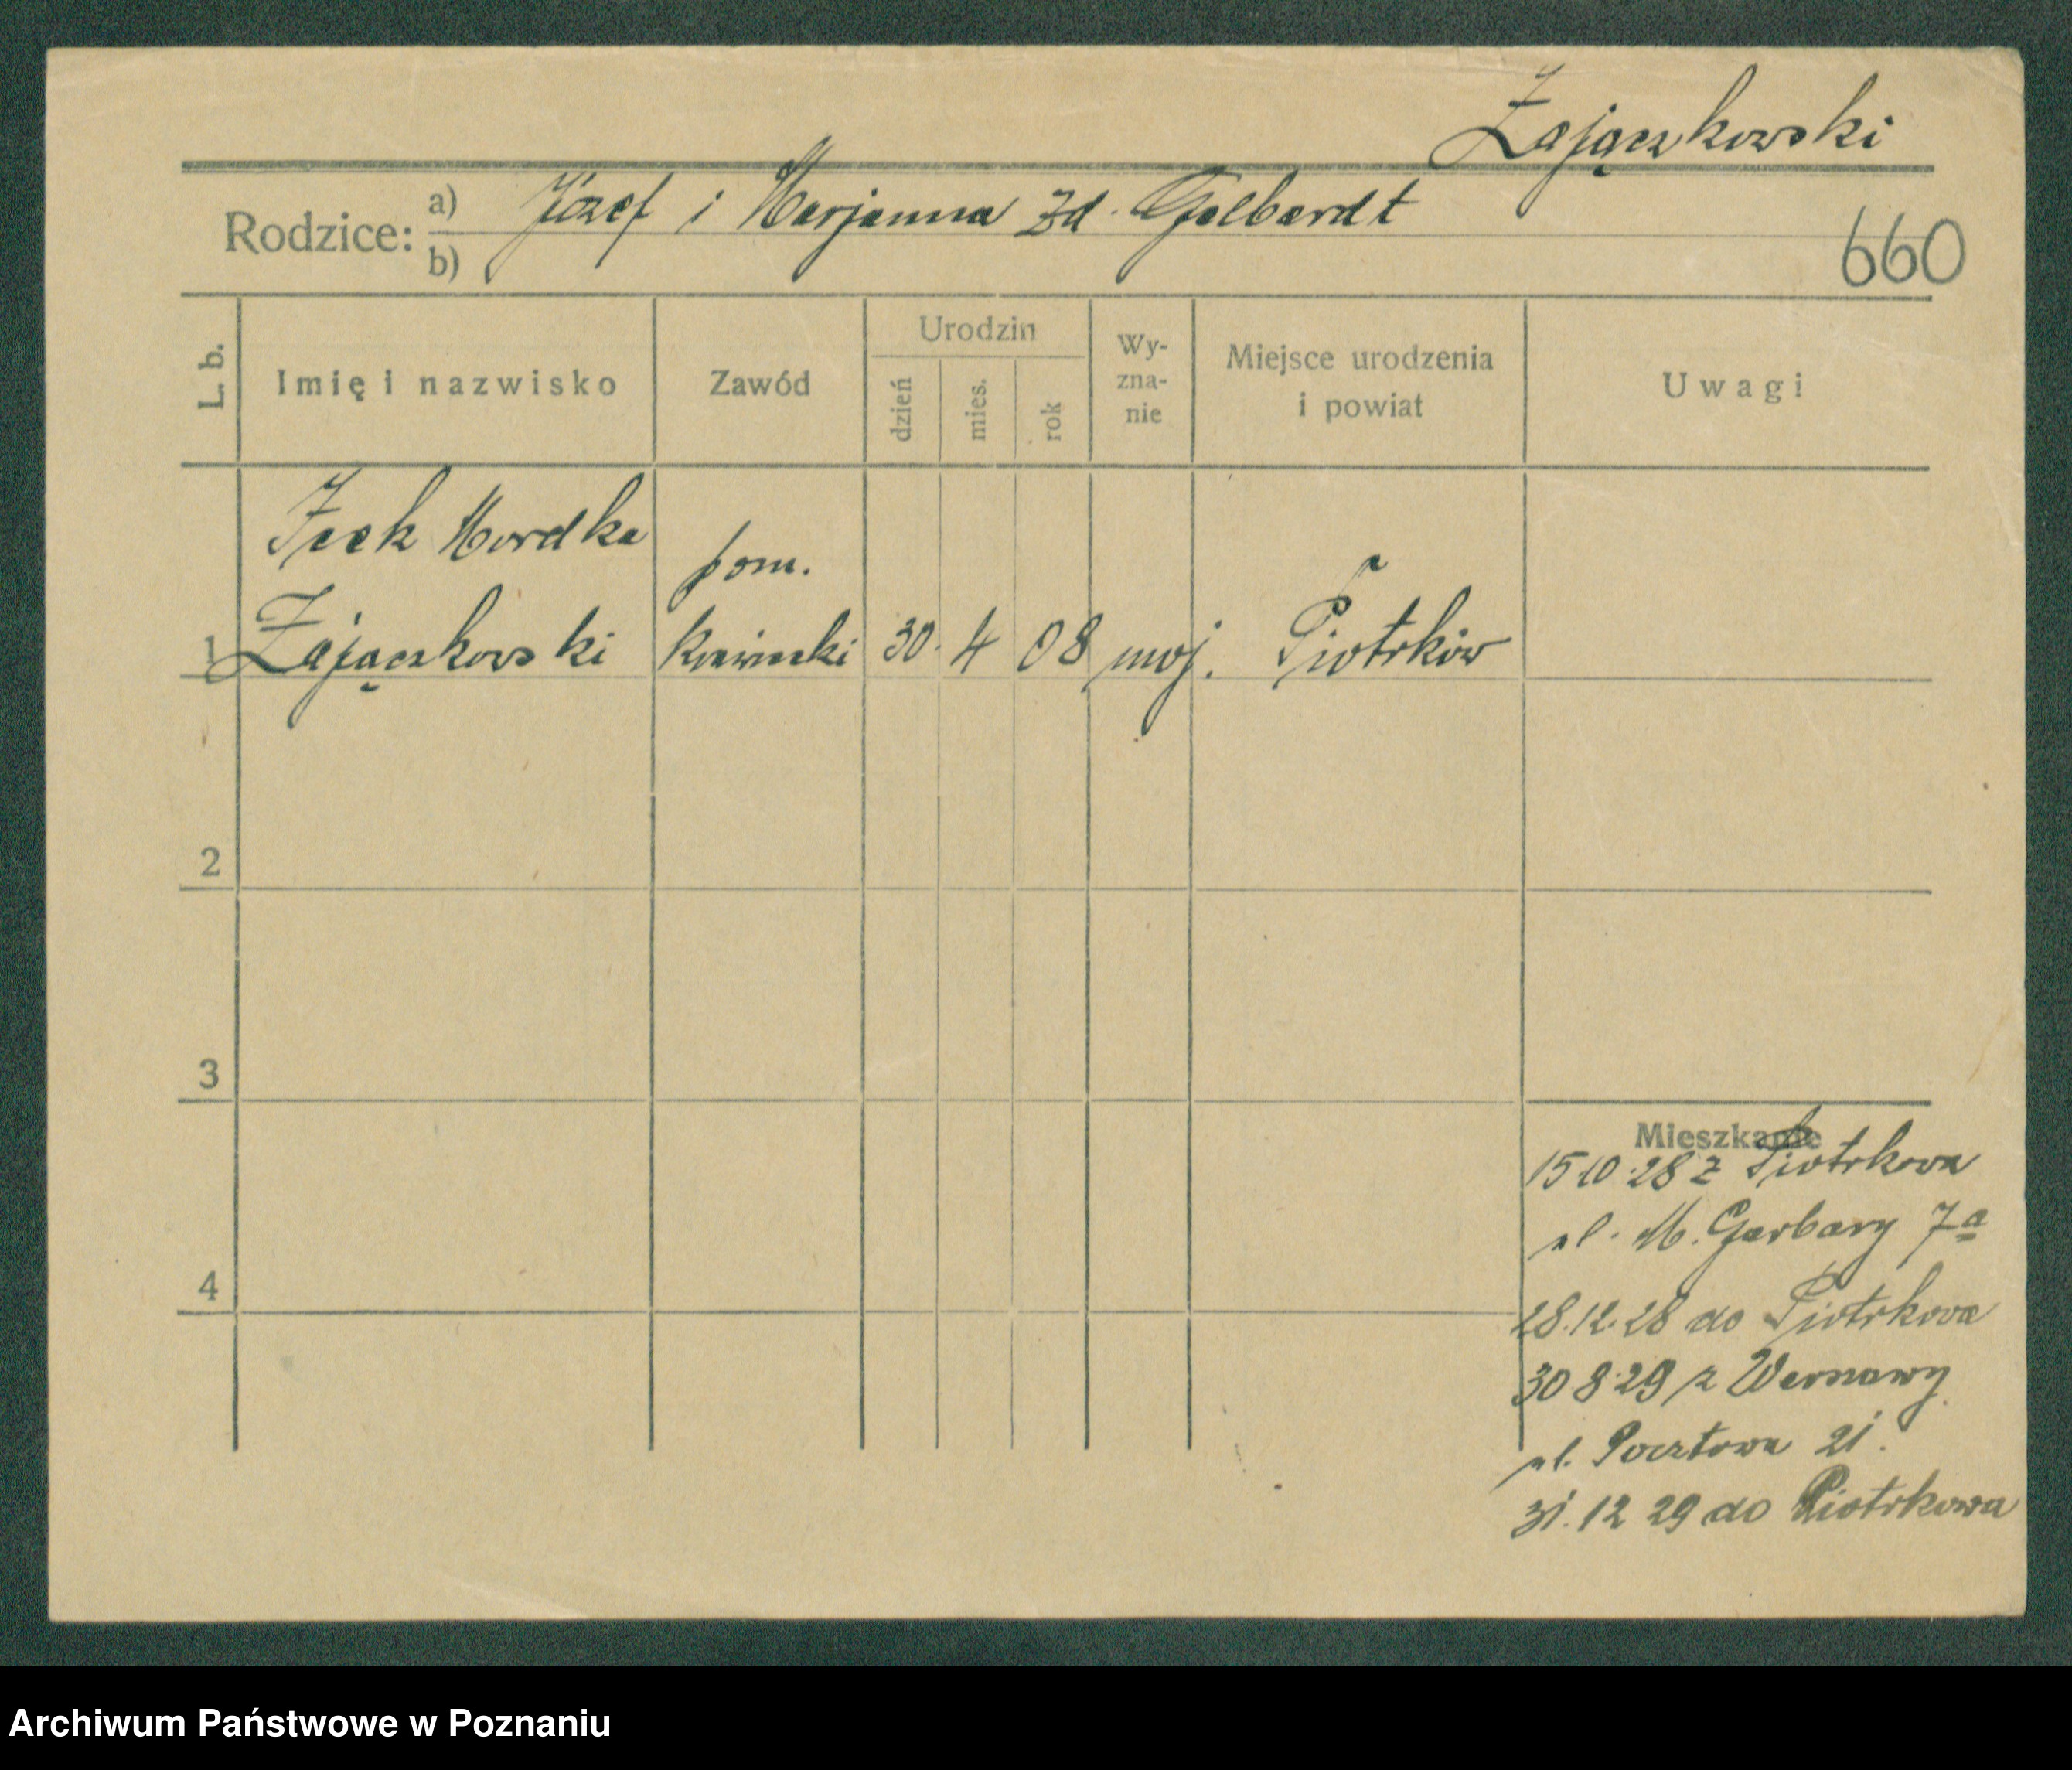 Zajączkowski
Rodzice: a) Józef i Marjanna zd. Gelbardt
b)
660
L. b.
Imię i nazwisko
Zawód
Urodzin
dzień
mies.
rok
Wy-
zna-
nie
Miejsce urodzenia
i powiat
Uwagi
Icek Mordka
pom.
1 Zajączkowski krawiecki 30. 4 08 moj. Piotrków
2
3
4
Mieszkanie
15 10 28 z Piotrkowa
ul. M. Garbary 7a
28.12.28 do Piotrkowa
30 8 29 z Warszawy
ul. Pocztowa 21.
31. 12 29 do Piotrkowa
Archiwum Państwowe w Poznaniu